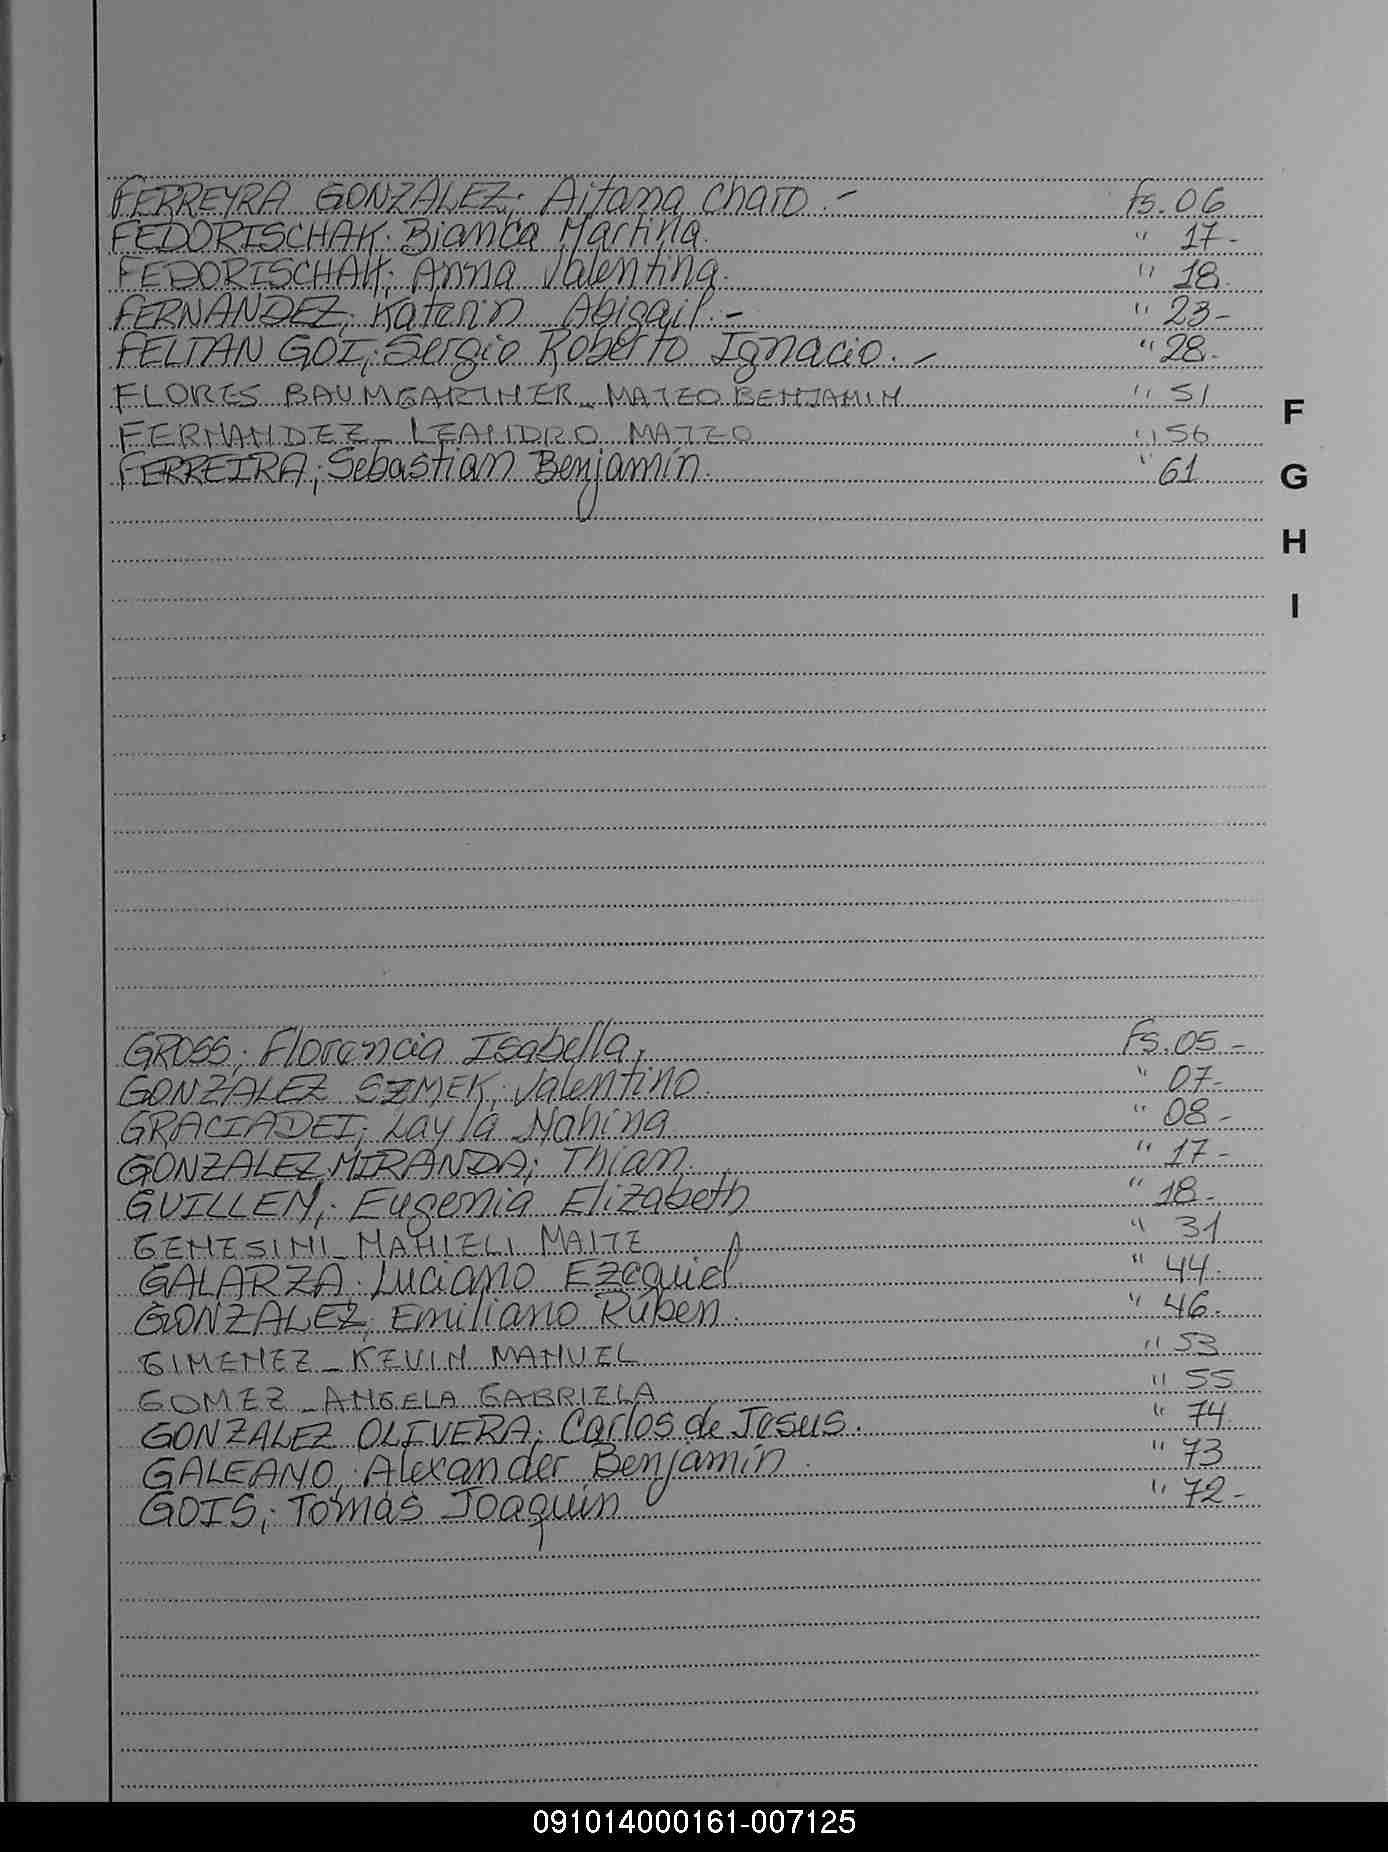 FERREYRA GONZALEZ; Aitana Charo.- Fs. 06
FEDORISCHAK; Bianca Martina. " 17-
FEDORISCHAK; Anna Valentina. " 18.
FERNANDEZ; Katerin Abigail.- " 23-
FELTAN GOI; Sergio Roberto Ignacio.- " 28-
FLORES BAUMGARTNER_ MATEO BENJAMIN " 51
FERNANDEZ_ LEANDRO MATEO " 56
FERREIRA; Sebastian Benjamín. " 61
F
G
H
I
GROSS; Florencia Isabella. Fs. 05-
GONZALEZ SZMEK; Valentino. " 07-
GRACIADEI; Layla Nahina " 08-
GONZALEZ MIRANDA; Thian. " 17-
GUILLEN; Eugenia Elizabeth " 18-
GENESINI_ NAHIELI MAITE " 31
GALARZA; Luciano Ezequiel " 44.
GONZALEZ; Emiliano Rubén. " 46.
GIMENEZ_ KEVIN MANUEL " 53
GOMEZ_ ANGELA GABRIELA " 55
GONZALEZ OLIVERA; Carlos de Jesus. " 74.
GALEANO; Alexander Benjamín. " 73
GOIS; Tomás Joaquín " 72-
091014000161-007125